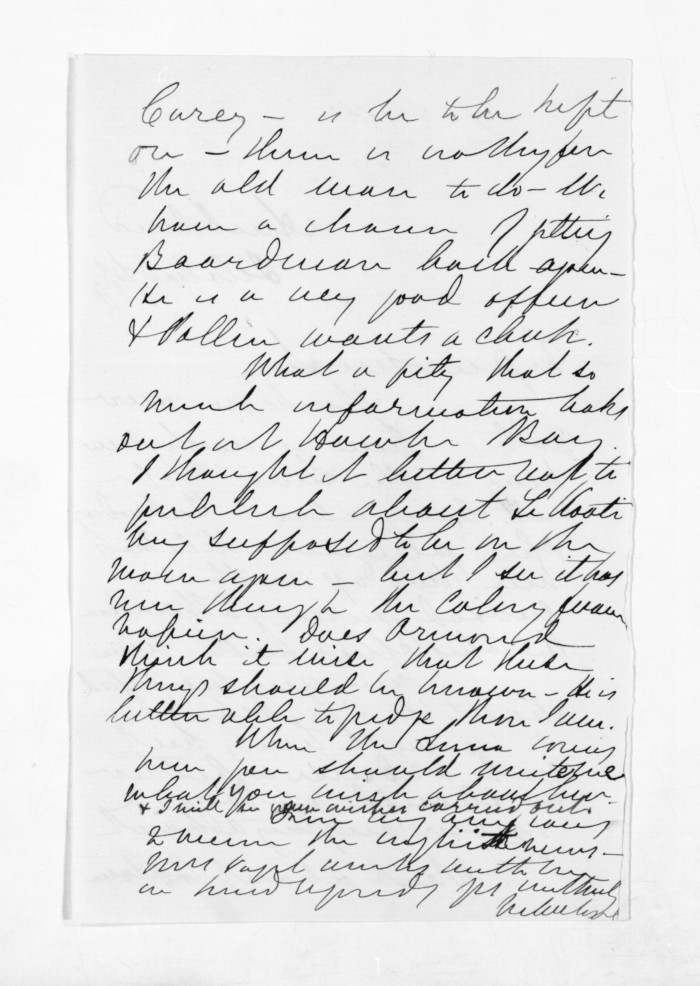 Carey — is he to be kept
on — there is nothing for
the old man to do — We
have a chance of getting
Boardman back again —
He is a very good officer
& Pollen wants a clerk.
What a pity that so
much information leaks
out at Hawke Bay.
I thought it better not to
publish about Te Kooti
being supposed to be on the
move again — but I see it has
run through the Colony from
Napier. Does Ormond
think it wise that these
things should be known — He is
better able to judge than I am.
When the Luna comes
here you should write me
what you wish about her
& I will see your wishes carried out.
I am very
to the English news —
Mrs Vogel unites with me
in kind regards yrs